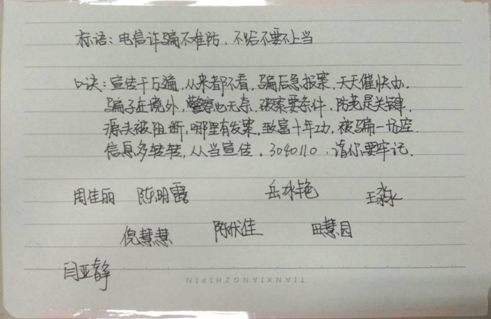 标语：电信诈骗不难防，不给不要不上当
口诀：宣告千万遍，从来都不看，骗后急报案，天天催快办，
骗子在境外，警察也无奈，破案要条件，防范是关键，
源头被阻断，哪里有发案，致富十年功，被骗一场空
信息多转转，从当宣传，3040110，请你要牢记。
周佳丽 陈明霞 岳冰艳 王淼
倪慧慧 陈佳 田慧月
闫亚静
TIANXIANGZHIPIN